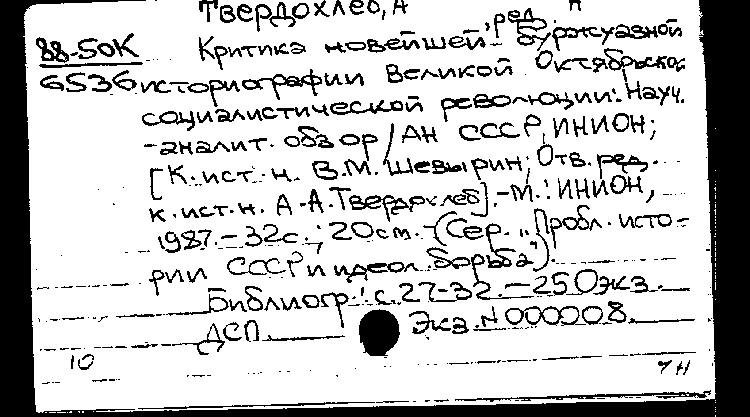 Твердохлеб, А
, ред. А
88-50К Критика новейшей буржуазной
6536 историографии Великой Октябрьской
социалистической революции: Науч.
-аналит. обзор / АН СССР, ИНИОН;
[К. ист. н. В.М. Шевырин; Отв. ред.
к. ист. н. А.А. Твердохлеб]. -М.: ИНИОН,
1987. - 32с.; 20см. - (Сер. "Пробл. исто-
рии СССР и идеол. борьба").
Библиогр.: с. 27-32. - 250экз.
ДСП. Экз. N 000008.
10